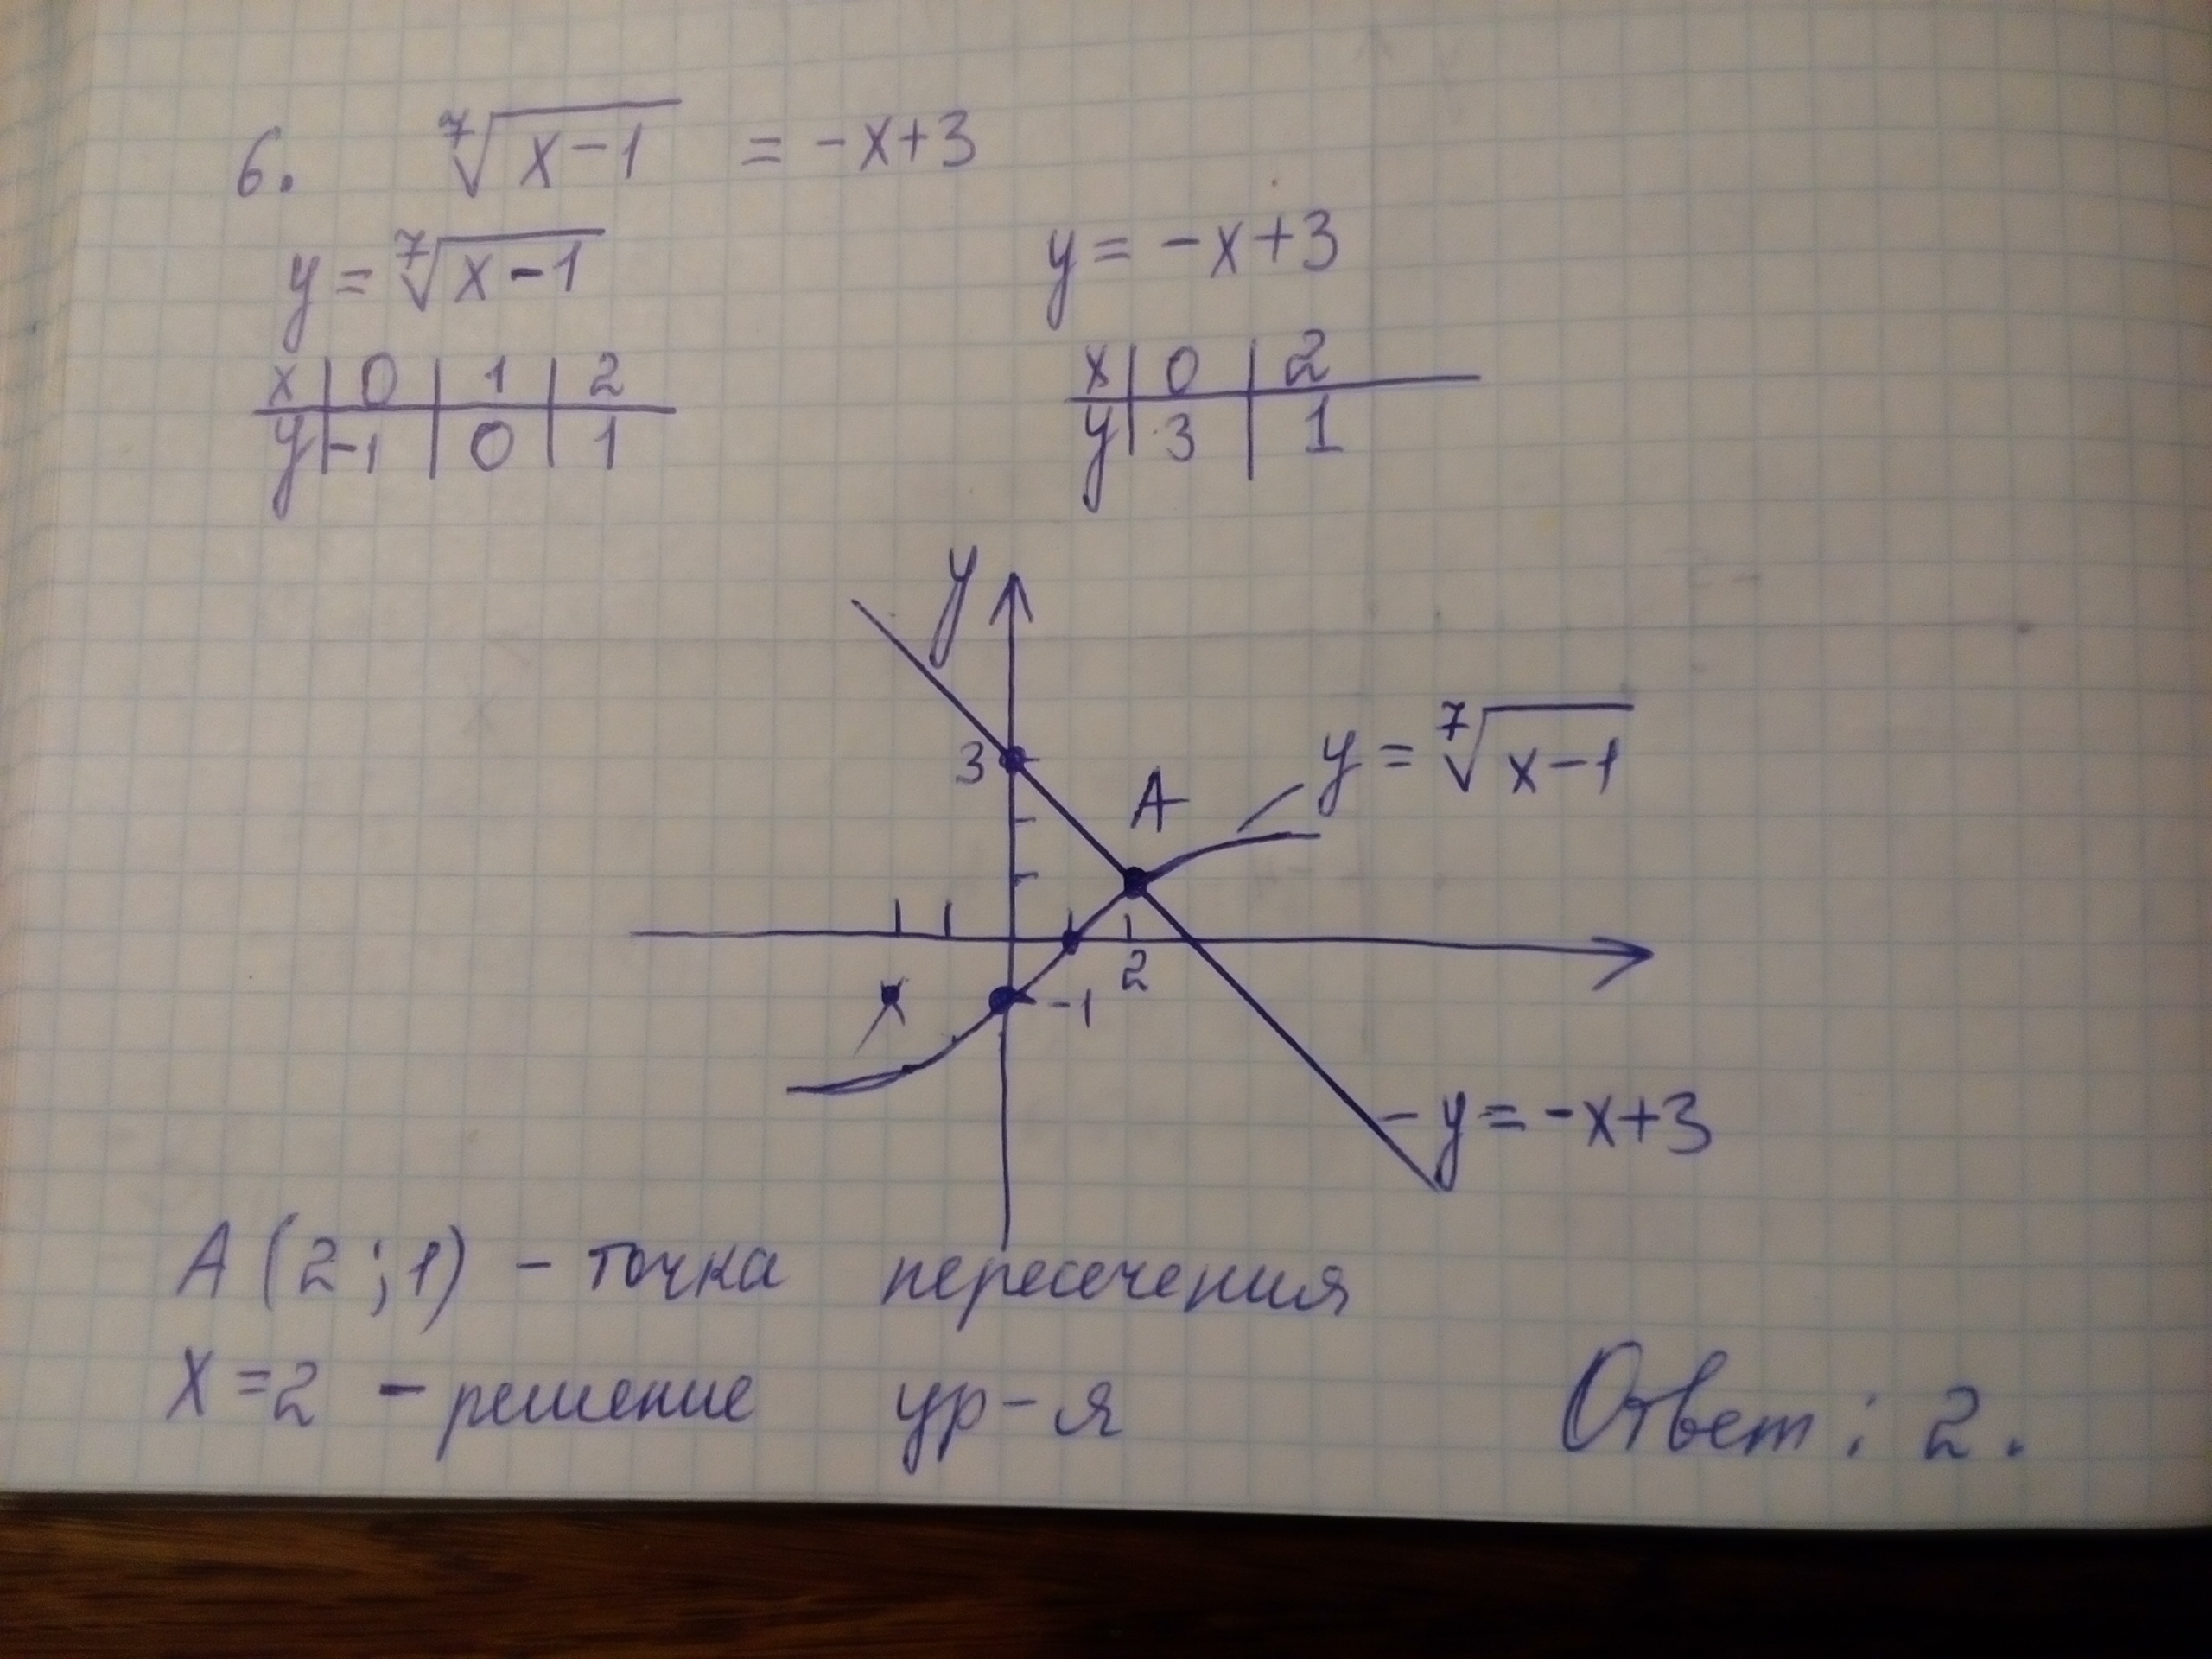 6. ⁷√(x-1) = -x+3
y = ⁷√(x-1)
x | 0 | 1 | 2
y | -1 | 0 | 1
y = -x+3
x | 0 | 2
y | 3 | 1
y
3
A
y = ⁷√(x-1)
2
-1
x
y = -x+3
A (2;1) - точка пересечения
x=2 - решение ур-я
Ответ: 2.